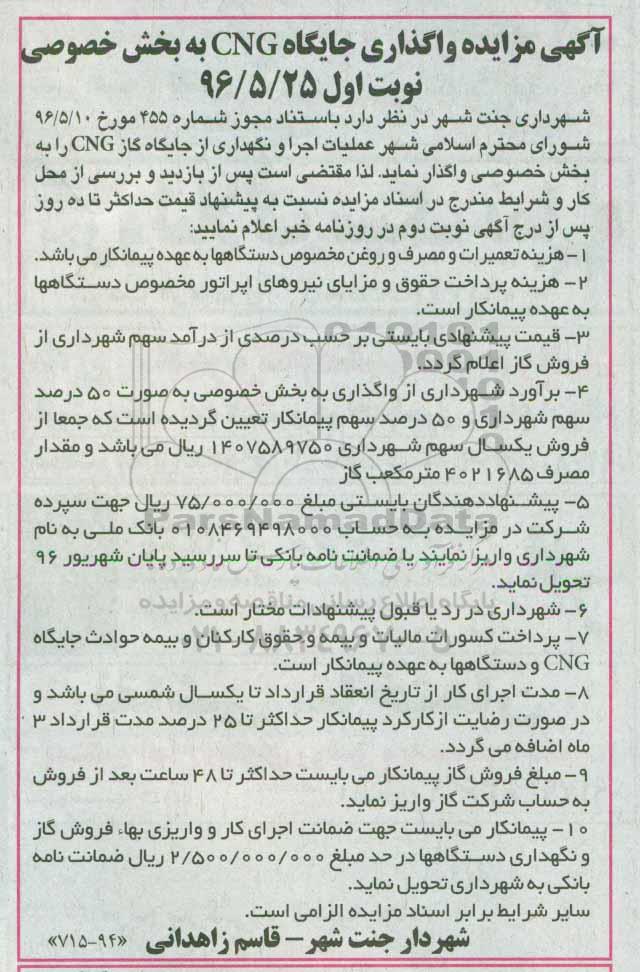 آگهی مزایده واگذاری جایگاه CNG به بخش خصوصی
نوبت اول ۹۶/۵/۲۵
شهرداری جنت شهر در نظر دارد باستناد مجوز شماره ۴۵۵ مورخ ۹۶/۵/۱۰
شورای محترم اسلامی شهر عملیات اجرا و نگهداری از جایگاه گاز CNG را به
بخش خصوصی واگذار نماید. لذا مقتضی است پس از بازدید و بررسی از محل
کار و شرایط مندرج در اسناد مزایده نسبت به پیشنهاد قیمت حداکثر تا ده روز
پس از درج آگهی نوبت دوم در روزنامه خبر اعلام نمایید:
۱- هزینه تعمیرات و مصرف و روغن مخصوص دستگاهها به عهده پیمانکار می باشد.
۲- هزینه پرداخت حقوق و مزایای نیروهای اپراتور مخصوص دستگاهها
به عهده پیمانکار است.
۳- قیمت پیشنهادی بایستی بر حسب درصدی از درآمد سهم شهرداری از
فروش گاز اعلام گردد.
۴- برآورد شهرداری از واگذاری به بخش خصوصی به صورت ۵۰ درصد
سهم شهرداری و ۵۰ درصد سهم پیمانکار تعیین گردیده است که جمعا از
فروش یکسال سهم شهرداری ۱۴۰۷۵۸۹۷۵۰ ریال می باشد و مقدار
مصرف ۴۰۲۱۶۸۵ مترمکعب گاز
۵- پیشنهاددهندگان بایستی مبلغ ۷۵/۰۰۰/۰۰۰ ریال جهت سپرده
شرکت در مزایده به حساب ۰۱۰۸۴۶۹۴۹۸۰۰۰ بانک ملی به نام
شهرداری واریز نمایند یا ضمانت نامه بانکی تا سررسید پایان شهریور ۹۶
تحویل نماید.
۶- شهرداری در رد یا قبول پیشنهادات مختار است.
۷- پرداخت کسورات مالیات و بیمه و حقوق کارکنان و بیمه حوادث جایگاه
CNG و دستگاهها به عهده پیمانکار است.
۸- مدت اجرای کار از تاریخ انعقاد قرارداد تا یکسال شمسی می باشد و
در صورت رضایت ازکارکرد پیمانکار حداکثر تا ۲۵ درصد مدت قرارداد ۳
ماه اضافه می گردد.
۹- مبلغ فروش گاز پیمانکار می بایست حداکثر تا ۴۸ ساعت بعد از فروش
به حساب شرکت گاز واریز نماید.
۱۰- پیمانکار می بایست جهت ضمانت اجرای کار و واریزی بهاء فروش گاز
و نگهداری دستگاهها در حد مبلغ ۲/۵۰۰/۰۰۰/۰۰۰ ریال ضمانت نامه
بانکی به شهرداری تحویل نماید.
سایر شرایط برابر اسناد مزایده الزامی است.
شهردار جنت شهر – قاسم زاهدانی «۷۱۵-۹۴»
ParsNamadData
پایگاه اطلاع رسانی مناقصه و مزایده